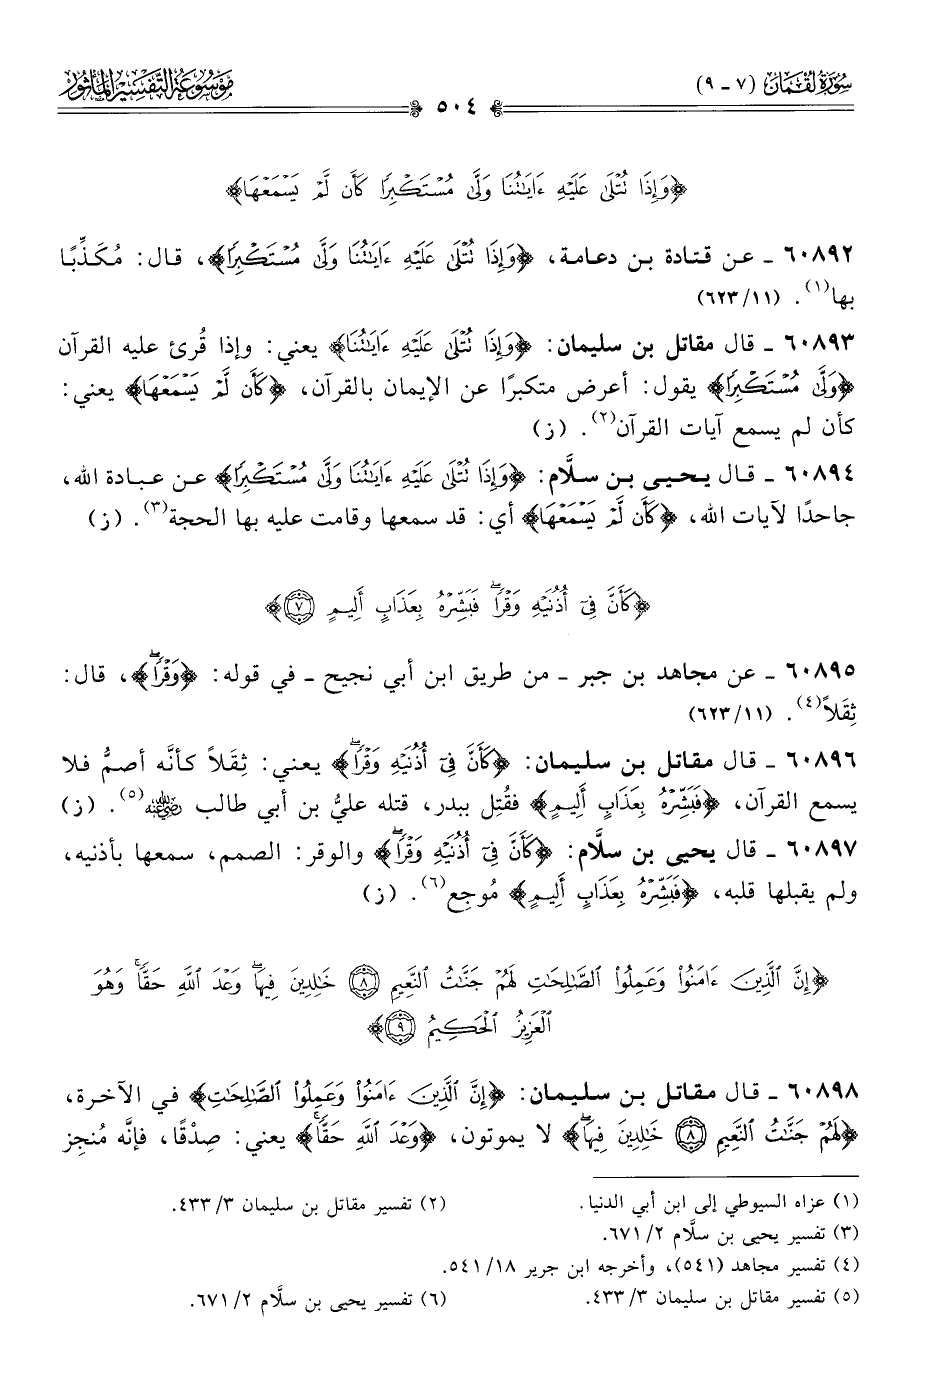 سُورَةُ لُقْمَان (٧ - ٩)
٥٠٤
مَوْسُوعَة التَّفْسِيرِ المَأْثُور
﴿وَإِذَا تُتْلَىٰ عَلَيْهِ ءَايَٰتُنَا وَلَّىٰ مُسْتَكْبِرًا كَأَن لَّمْ يَسْمَعْهَا﴾
٦٠٨٩٢ ـ عن قتادة بن دعامة، ﴿وَإِذَا تُتْلَىٰ عَلَيْهِ ءَايَٰتُنَا وَلَّىٰ مُسْتَكْبِرًا﴾، قال: مُكَذِّبًا
بها(١). (٦٢٣/١١)
٦٠٨٩٣ ـ قال مقاتل بن سليمان: ﴿وَإِذَا تُتْلَىٰ عَلَيْهِ ءَايَٰتُنَا﴾ يعني: وإذا قُرئ عليه القرآن
﴿وَلَّىٰ مُسْتَكْبِرًا﴾ يقول: أعرض متكبرًا عن الإيمان بالقرآن، ﴿كَأَن لَّمْ يَسْمَعْهَا﴾ يعني:
كأن لم يسمع آيات القرآن(٢). (ز)
٦٠٨٩٤ ـ قال يحيى بن سلَّام: ﴿وَإِذَا تُتْلَىٰ عَلَيْهِ ءَايَٰتُنَا وَلَّىٰ مُسْتَكْبِرًا﴾ عن عبادة الله،
جاحدًا لآيات الله، ﴿كَأَن لَّمْ يَسْمَعْهَا﴾ أي: قد سمعها وقامت عليه بها الحجة(٣). (ز)
﴿كَأَنَّ فِىٓ أُذُنَيْهِ وَقْرًاۖ فَبَشِّرْهُ بِعَذَابٍ أَلِيمٍ ٧﴾
٦٠٨٩٥ ـ عن مجاهد بن جبر ـ من طريق ابن أبي نجيح ـ في قوله: ﴿وَقْرًاۖ﴾، قال:
ثِقَلاً(٤). (٦٢٣/١١)
٦٠٨٩٦ ـ قال مقاتل بن سليمان: ﴿كَأَنَّ فِىٓ أُذُنَيْهِ وَقْرًاۖ﴾ يعني: ثِقَلاً كأنَّه أصمُّ فلا
يسمع القرآن، ﴿فَبَشِّرْهُ بِعَذَابٍ أَلِيمٍ﴾ فقُتِل ببدر، قتله عليُّ بن أبي طالب رضي الله عنه(٥). (ز)
٦٠٨٩٧ ـ قال يحيى بن سلَّام: ﴿كَأَنَّ فِىٓ أُذُنَيْهِ وَقْرًاۖ﴾ والوقر: الصمم، سمعها بأذنيه،
ولم يقبلها قلبه، ﴿فَبَشِّرْهُ بِعَذَابٍ أَلِيمٍ﴾ مُوجِع(٦). (ز)
﴿إِنَّ ٱلَّذِينَ ءَامَنُوا۟ وَعَمِلُوا۟ ٱلصَّٰلِحَٰتِ لَهُمْ جَنَّٰتُ ٱلنَّعِيمِ ٨ خَٰلِدِينَ فِيهَاۖ وَعْدَ ٱللَّهِ حَقًّاۚ وَهُوَ
ٱلْعَزِيزُ ٱلْحَكِيمُ ٩﴾
٦٠٨٩٨ ـ قال مقاتل بن سليمان: ﴿إِنَّ ٱلَّذِينَ ءَامَنُوا۟ وَعَمِلُوا۟ ٱلصَّٰلِحَٰتِ﴾ في الآخرة،
﴿لَهُمْ جَنَّٰتُ ٱلنَّعِيمِ ٨ خَٰلِدِينَ فِيهَاۖ﴾ لا يموتون، ﴿وَعْدَ ٱللَّهِ حَقًّاۚ﴾ يعني: صِدْقًا، فإنَّه مُنجِز
(١) عزاه السيوطي إلى ابن أبي الدنيا. (٢) تفسير مقاتل بن سليمان ٤٣٣/٣.
(٣) تفسير يحيى بن سلَّام ٦٧١/٢.
(٤) تفسير مجاهد (٥٤١)، وأخرجه ابن جرير ٥٤١/١٨.
(٥) تفسير مقاتل بن سليمان ٤٣٣/٣. (٦) تفسير يحيى بن سلَّام ٦٧١/٢.